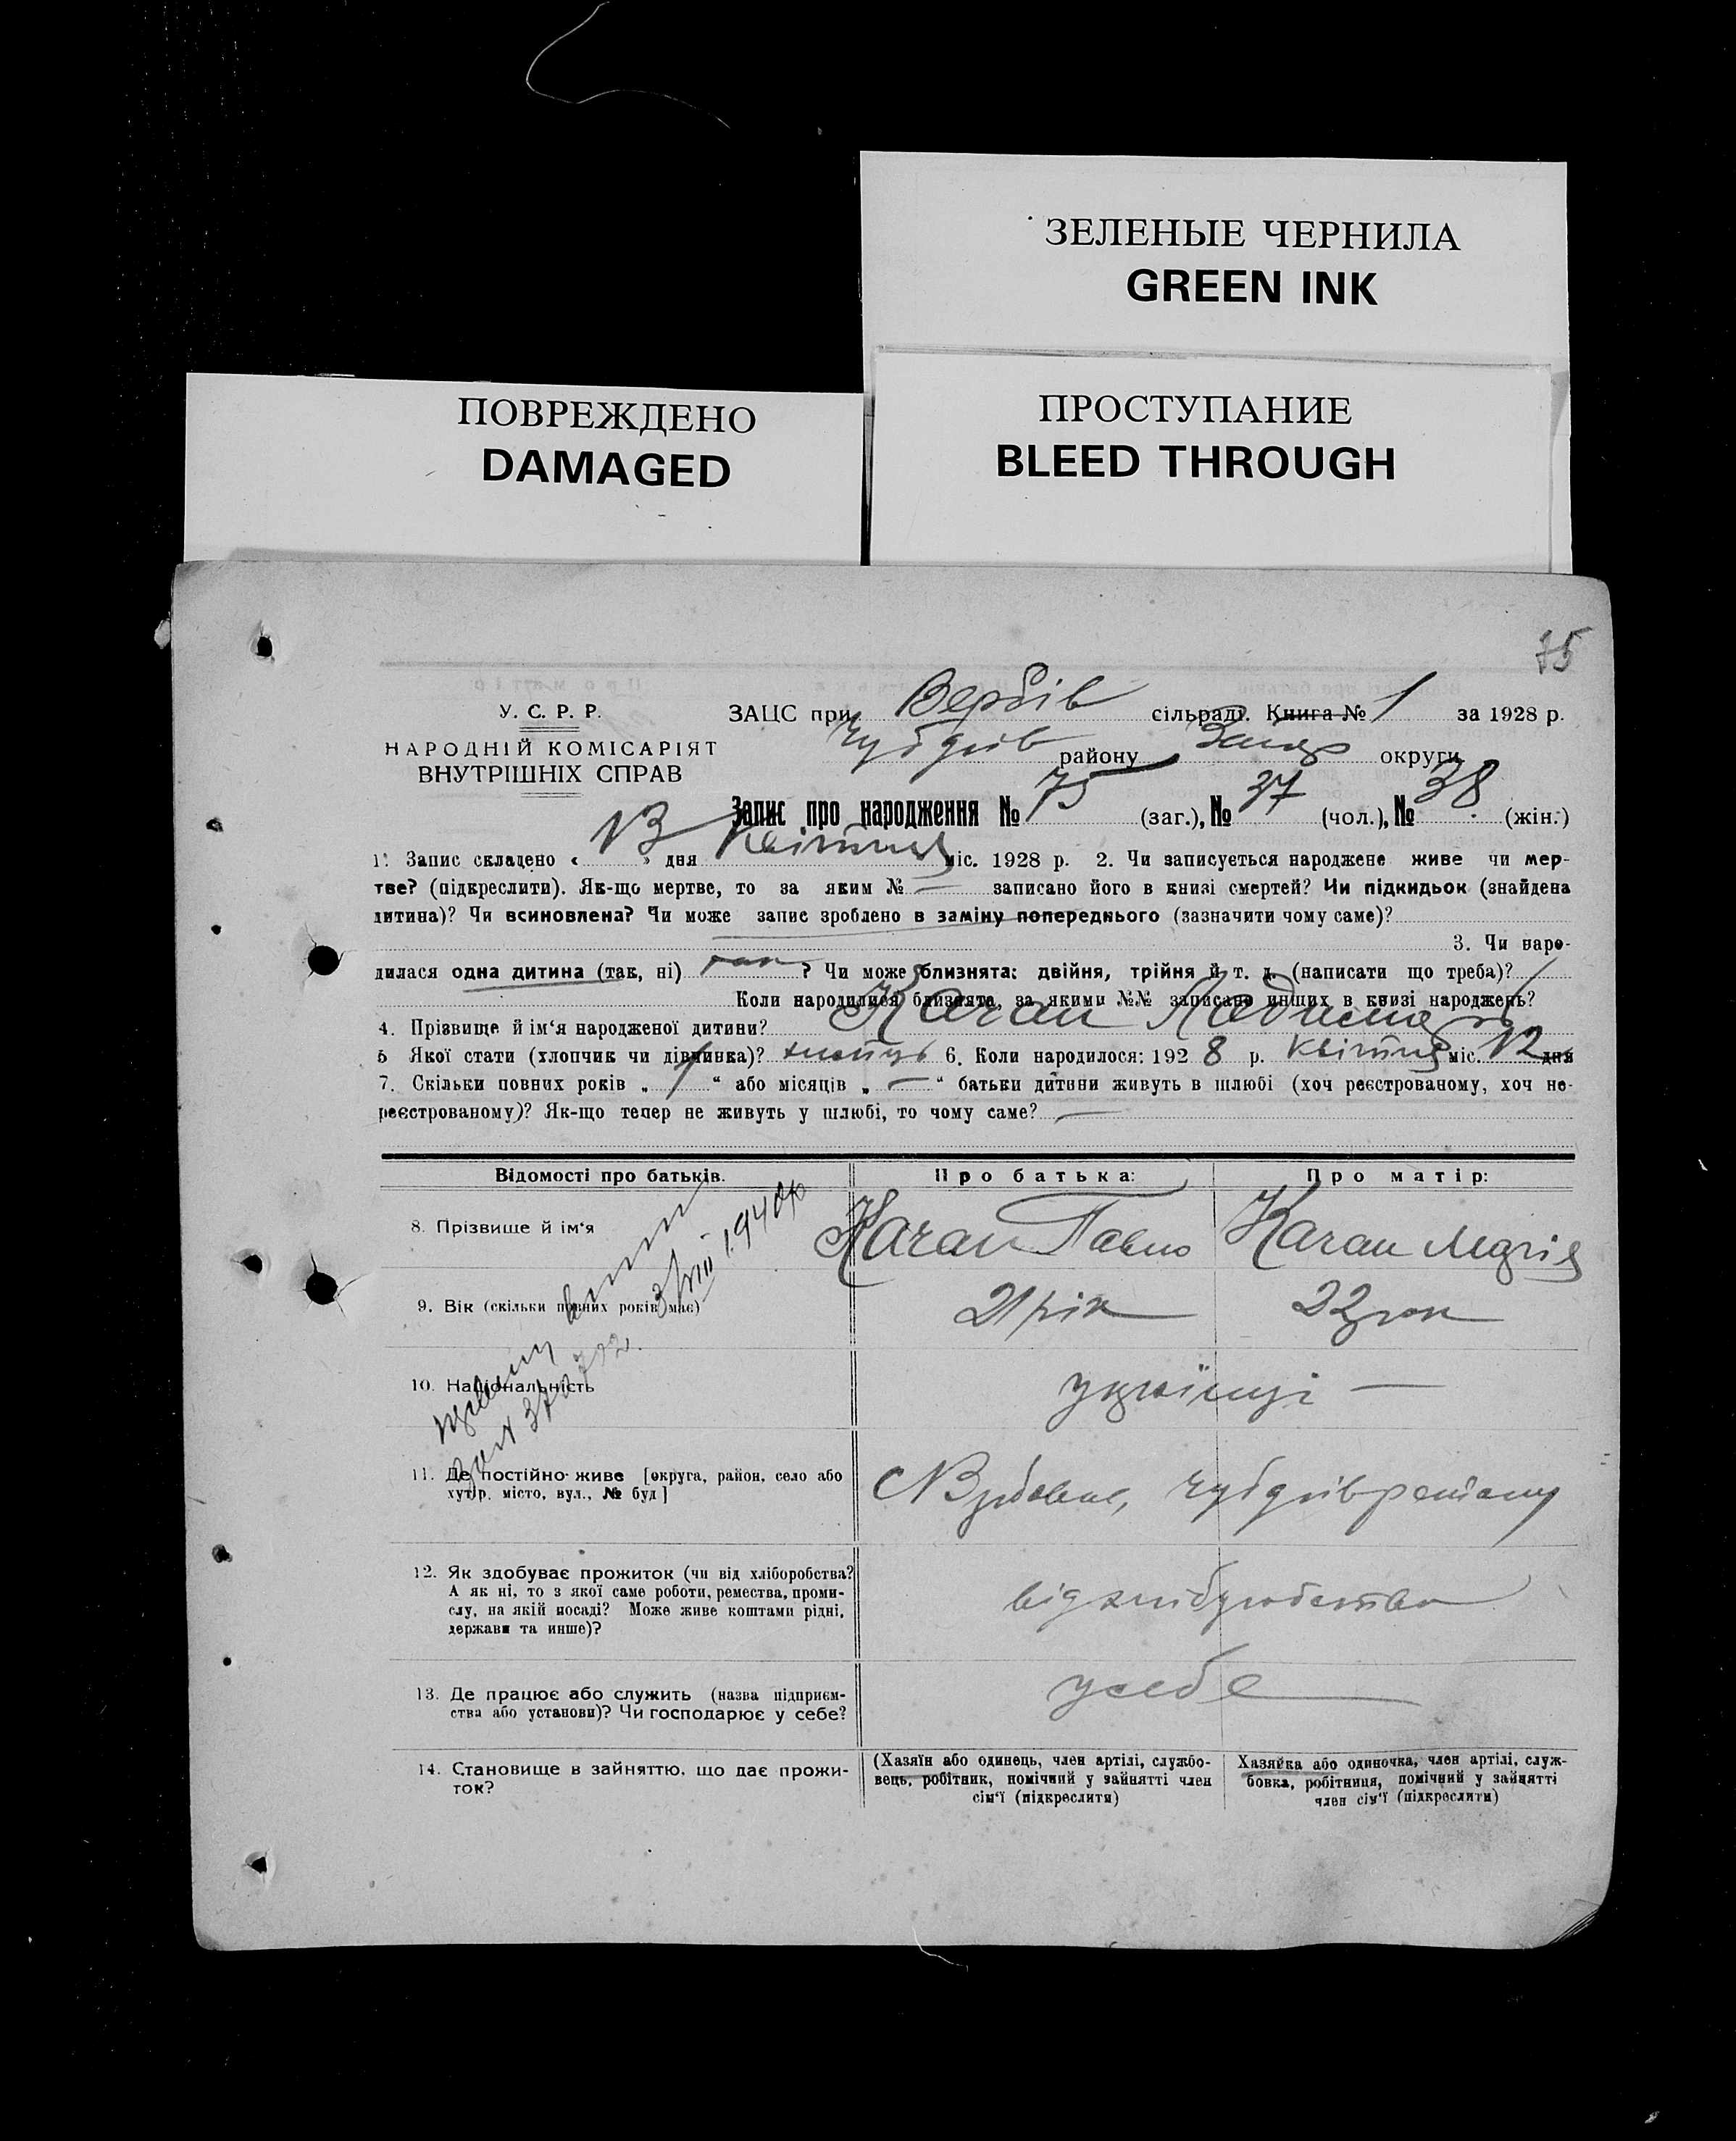 ЗЕЛЕНЫЕ ЧЕРНИЛА
GREEN INK
ПОВРЕЖДЕНО
DAMAGED
ПРОСТУПАНИЕ
BLEED THROUGH
75
У. С. Р. Р.
НАРОДНІЙ КОМІСАРІЯТ
ВНУТРІШНІХ СПРАВ
ЗАЦС при Вербів сільраді. Книга № 1 за 1928 р.
району округи
Запис про народження № 75 (заг.), № 37 (чол.), № 38 (жін.)
1. Запис складено « 13 » дня Квітня міс. 1928 р. 2. Чи записується народжене живе чи мер-
тве? (підкреслити). Як-що мертве, то за яким № — записано його в книзі смертей? Чи підкидьок (знайдена
дитина)? Чи всиновлена? Чи може запис зроблено в заміну попереднього (зазначити чому саме)?
3. Чи наро-
дилася одна дитина (так, ні) так ? Чи може близнята: двійня, трійня й т. д. (написати що треба)?
Коли народилися близнята, за якими №№ записано инших в книзі народжень?
4. Прізвище й ім'я народженої дитини? Качан
5 Якої стати (хлопчик чи дівчинка)? хлопець 6. Коли народилося: 192 8 р. Квітня міс. 12 дня
7. Скільки повних років „ 1 " або місяців „ — " батьки дитини живуть в шлюбі (хоч реєстрованому, хоч не-
реєстрованому)? Як-що тепер не живуть у шлюбі, то чому саме? —
Відомості про батьків. Про батька: Про матір:
8. Прізвище й ім'я Качан Павло Качан Марія
9. Вік (скільки повних років має) 21 рік 22 рок
10. Національність українці —
11. Де постійно живе [округа, район, село або
хутір. місто, вул., № буд]
12. Як здобуває прожиток (чи від хліборобства?
А як ні, то з якої саме роботи, ремества, проми-
слу, на якій посаді? Може живе коштами рідні,
держави та инше)?
від хліборобства
13. Де працює або служить (назва підприєм-
ства або установи)? Чи господарює у себе?
у себе
14. Становище в зайняттю, що дає прожи-
ток?
(Хазяїн або одинець, член артілі, службо-
вець, робітник, помічний у зайнятті член
сім'ї (підкреслити)
Хазяйка або одиночка, член артілі, служ-
бовка, робітниця, помічний у зайнятті
член сім'ї (підкреслити)